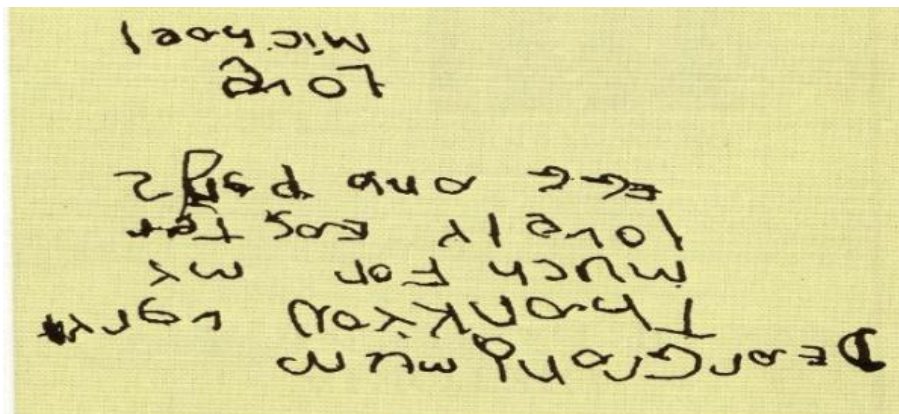 Dear Granymum
ThankYou very
much For my
lovely EasTer
Egg and
Love
Michael